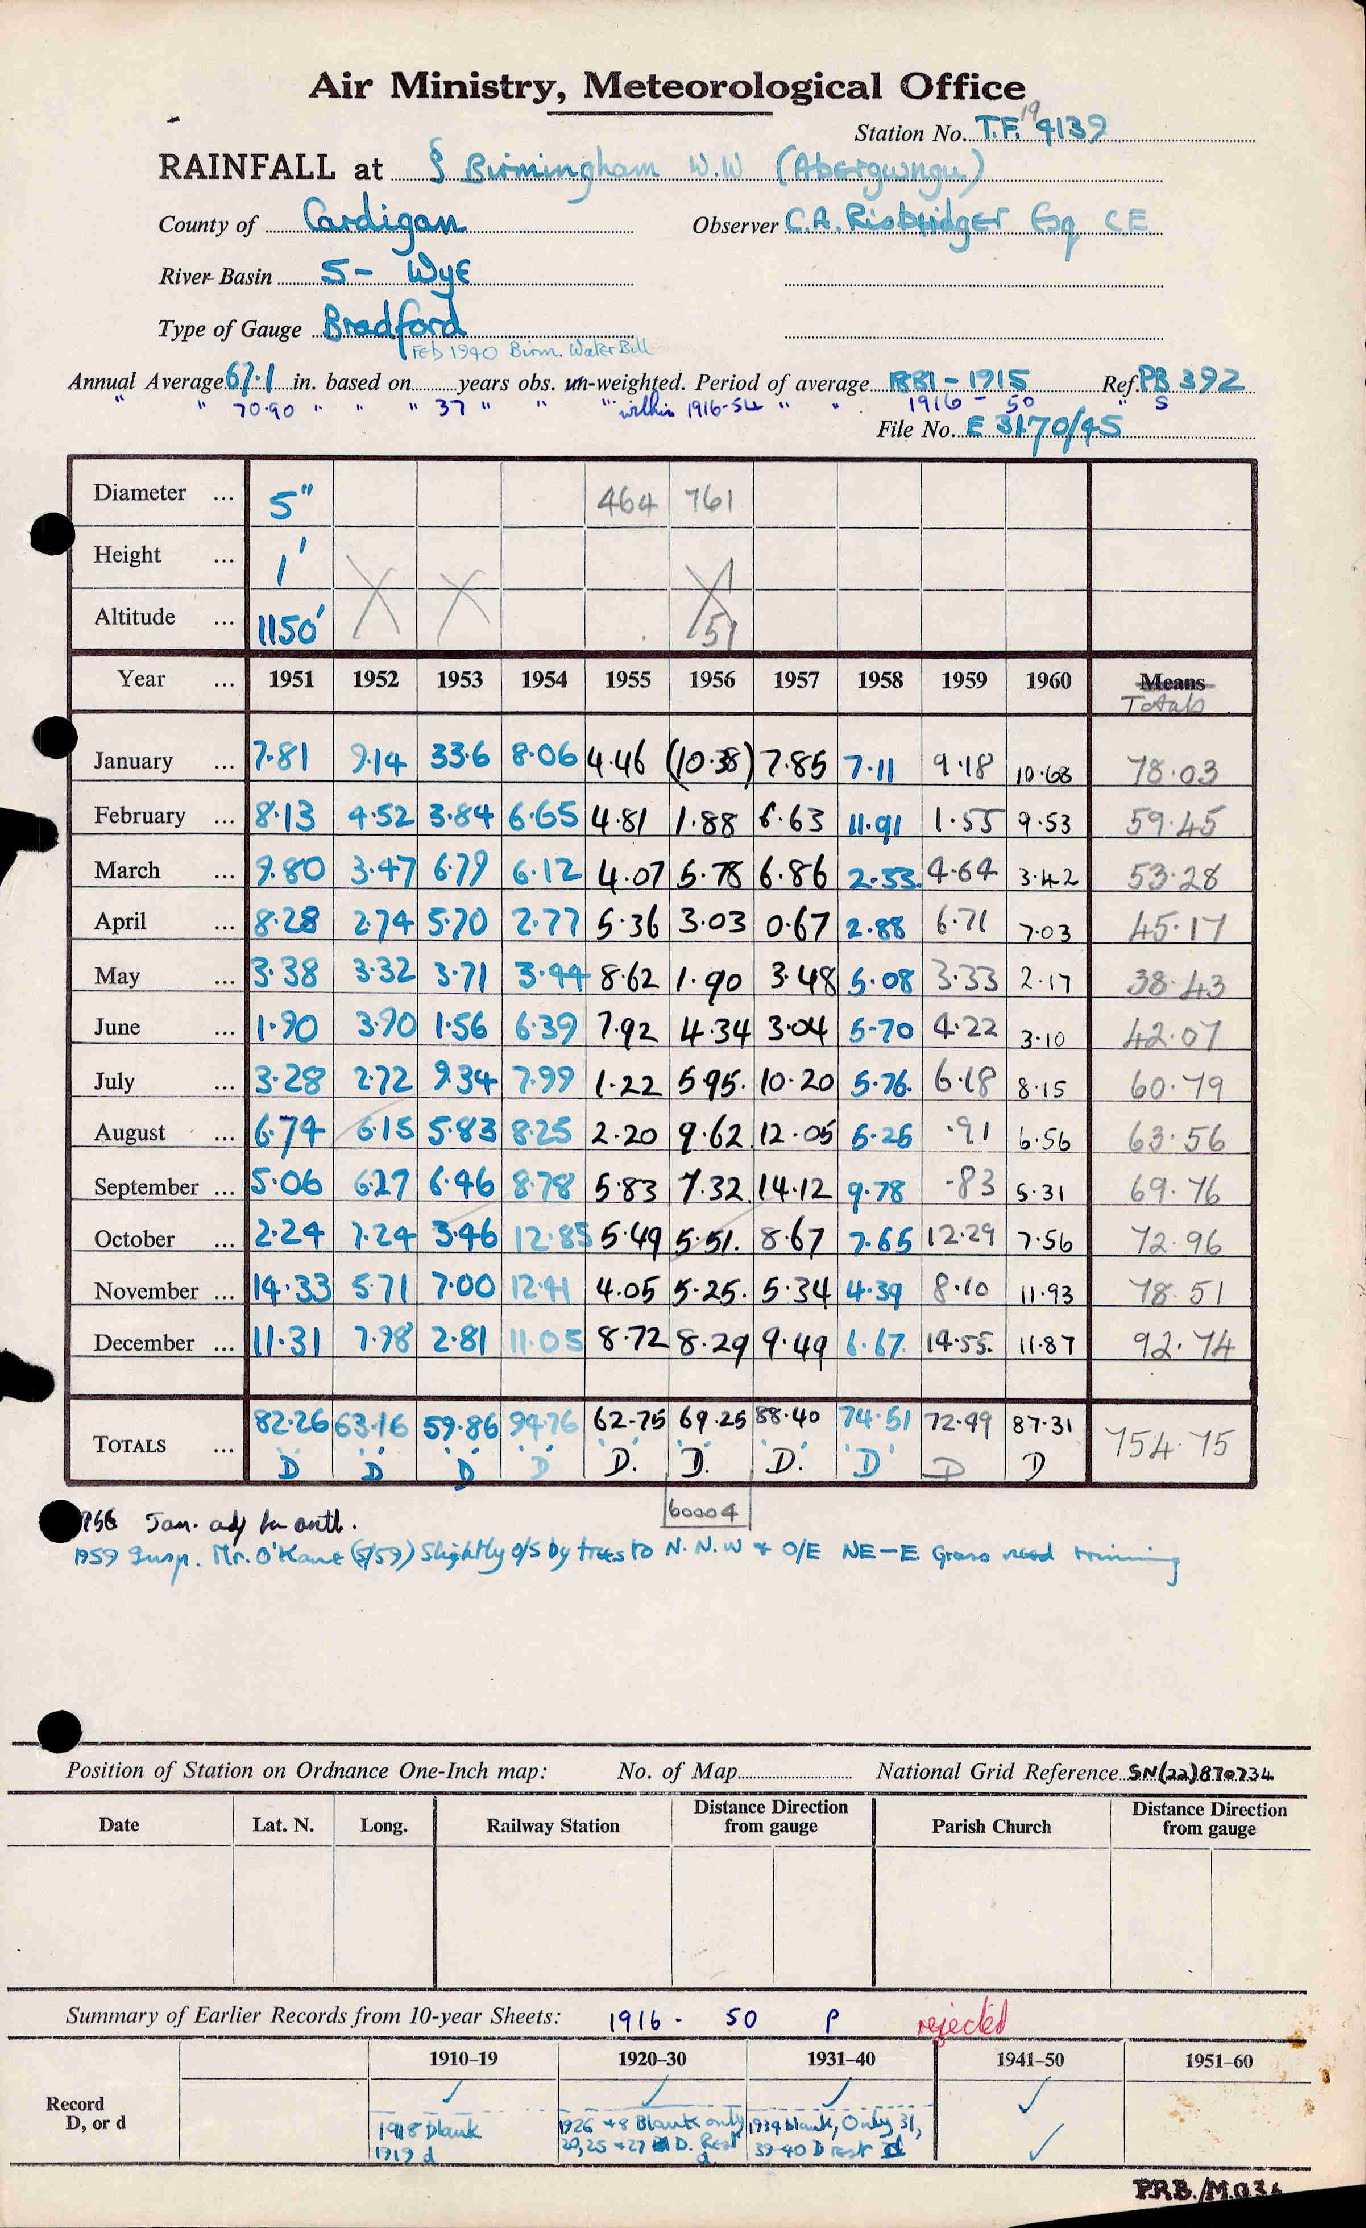 Air Ministry, Meteorological Office
Station No. T.F. 19 4139
RAINFALL at § Birmingham W.W (Abergwngu)
County of Cardigan Observer C.A. Risbridger Esq C.E
River Basin 5 - Wye
Type of Gauge Bradford
Feb 1940 Birm. Water Bill
Annual Average 67.1 in. based on years obs. un-weighted. Period of average 1881-1915 Ref. PB 392
" " 70.90 " " " 37 " " " within 1916-54 " " 1916 - 50 " S
File No. E 3170/45
Diameter ... 5" 464 761
Height ... 1'
Altitude ... 1150' 51
Year ... 1951 1952 1953 1954 1955 1956 1957 1958 1959 1960 Means
Totals
January ... 7.81 9.14 33.6 8.06 4.46 (10.38) 7.85 7.11 9.18 10.68 78.03
February ... 8.13 4.52 3.84 6.65 4.81 1.88 6.63 11.91 1.55 9.53 59.45
March ... 9.80 3.47 6.79 6.12 4.07 5.78 6.86 2.33 4.64 3.42 53.28
April ... 8.28 2.74 5.70 2.77 5.36 3.03 0.67 2.88 6.71 7.03 45.17
May ... 3.38 3.32 3.71 3.44 8.62 1.90 3.48 5.08 3.33 2.17 38.43
June ... 1.90 3.90 1.56 6.39 7.92 4.34 3.04 5.70 4.22 3.10 42.07
July ... 3.28 2.72 9.34 7.99 1.22 5.95 10.20 5.76 6.18 8.15 60.79
August ... 6.74 6.15 5.83 8.25 2.20 9.62 12.05 5.25 .91 6.56 63.56
September ... 5.06 6.27 6.46 8.78 5.83 7.32 14.12 9.78 .83 5.31 69.76
October ... 2.24 7.24 3.46 12.85 5.49 5.51 8.67 7.65 12.29 7.56 72.96
November ... 14.33 5.71 7.00 12.41 4.05 5.25 5.34 4.39 8.10 11.93 78.51
December ... 11.31 7.98 2.81 11.05 8.72 8.29 9.49 6.67 14.55 11.87 92.74
TOTALS ... 82.26 63.16 59.86 94.76 62.75 69.25 88.40 74.51 72.49 87.31 754.75
D D D D D. D. D. D D D
60004
Jan. adj for
1959 Insp. Mr. O'Kane (5/59) Slightly o/s by trees to N. N.W + O/E NE-E. Grass need trimming
Position of Station on Ordnance One-Inch map: No. of Map National Grid Reference SN(22)870734
Date Lat. N. Long. Railway Station Distance Direction from gauge Parish Church Distance Direction from gauge
Summary of Earlier Records from 10-year Sheets: 1916 - 50 P rejected
1910-19 1920-30 1931-40 1941-50 1951-60
Record D, or d
1918 blank
1919 d
1926 + 8 Blank only
20, 25 + 27 D. Rest d
1934 blank, Only 31,
39-40 D rest d
P.R.B./M.O.34